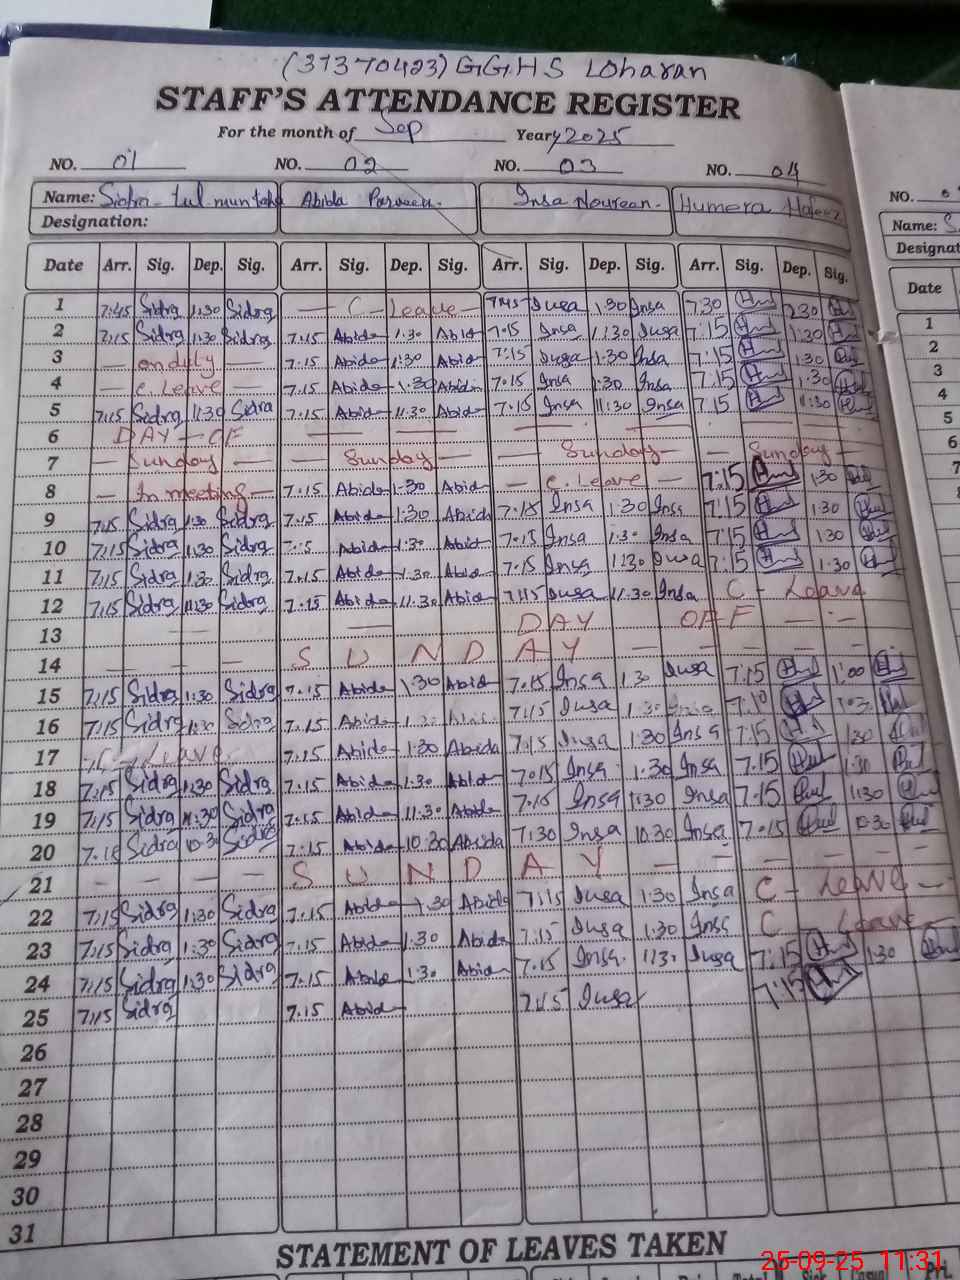 (37370423) GGHS Loharan
STAFF'S ATTENDANCE REGISTER
For the month of Sep Year 2025
NO. 01 NO. 02 NO. 03 NO. 04 NO.
Name: Sidra-tul muntaha Abida Parveen. Insa Noureen. Humera Hafeez Name: S
Designation: Designat
Date Arr. Sig. Dep. Sig. Arr. Sig. Dep. Sig. Arr. Sig. Dep. Sig. Arr. Sig. Dep. Sig. Date
1 7:45 Sidra 1:30 Sidra — C - Leave — 7:45 Insa 1:30 Insa 7:30 2:30 1
2 7:15 Sidra 1:30 Sidra 7.15 Abida 1:30 Abida 7:15 Insa 1:30 Insa 7:15 1:30 2
3 — on duty — 7.15 Abida 1:30 Abida 7:15 Insa 1:30 Insa 7:15 1:30 3
4 — C. Leave — 7.15 Abida 1.30 Abida 7.15 Insa 1:30 Insa 7:15 1:30 4
5 7:15 Sidra 11:30 Sidra 7.15 Abida 11:30 Abida 7.15 Insa 11:30 Insa 7.15 11:30 5
6 DAY — OF — — — — — — 6
7 — Sunday — — Sunday — — Sunday — — Sunday — 7
8 — In meeting — 7.15 Abida 1-30 Abida — C. Leave — 7:15 1:30
9 7:15 Sidra 1:30 Sidra 7.15 Abida 1:30 Abida 7:15 Insa 1:30 Insa 7:15 1:30
10 7:15 Sidra 1:30 Sidra 7.15 Abida 1:30 Abida 7:15 Insa 1:30 Insa 7:15 1:30
11 7:15 Sidra 1:30 Sidra 7.15 Abida 1.30 Abida 7.15 Insa 1:30 Insa 7:15 1:30
12 7:15 Sidra 11:30 Sidra 7.15 Abida 11.30 Abida 7:15 Insa 11.30 Insa C - Leave
13 — — DAY OFF — -
14 — — — S U N D A Y — — — — —
15 7:15 Sidra 1:30 Sidra 7.15 Abida 1:30 Abida 7.15 Insa 1:30 Insa 7:15 1:00
16 7:15 Sidra 1:30 Sidra 7.15 Abida 7:15 Insa 1:30 Insa 7:10
17 C - Leave 7.15 Abida 1:30 Abida 7:15 Insa 1:30 Insa 7:15 1:30
18 7:15 Sidra 1:30 Sidra 7.15 Abida 1:30 Abida 7:15 Insa 1:30 Insa 7.15 1:30
19 7:15 Sidra 11:30 Sidra 7.15 Abida 11:30 Abida 7.15 Insa 11:30 Insa 7:15 11:30
20 7.15 Sidra 10:30 Sidra 7.15 Abida 10:30 Abida 7:30 Insa 10:30 Insa 7:15 10:30
21 — — — — S U N D A Y — — — — — —
22 7:15 Sidra 1:30 Sidra 7.15 Abida 1:30 Abida 7:15 Insa 1:30 Insa C - Leave —
23 7:15 Sidra 1:30 Sidra 7.15 Abida 1:30 Abida 7:15 Insa 1:30 Insa C - Leave
24 7:15 Sidra 1:30 Sidra 7.15 Abida 1:30 Abida 7:15 Insa 1:30 Insa 7:15 1:30
25 7:15 Sidra 7.15 Abida 7:15 Insa 7:15
26
27
28
29
30
31
STATEMENT OF LEAVES TAKEN
25-09-25 11:31